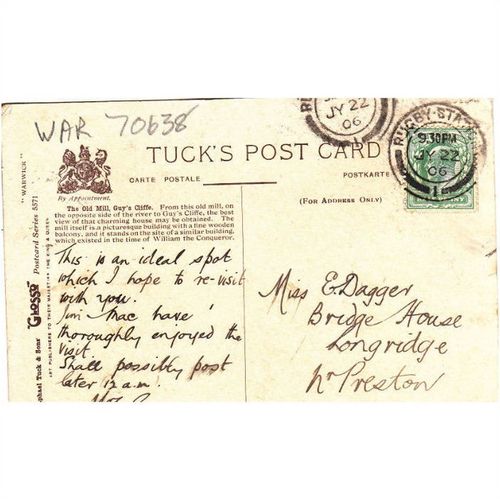 WAR 70638
TUCK'S POST CARD
CARTE POSTALE
POSTKARTE
(FOR ADDRESS ONLY)
By Appointment.
The Old Mill, Guy's Cliffe. From this old mill, on
the opposite side of the river to Guy's Cliffe, the best
view of that charming house may be obtained. The
mill itself is a picturesque building with a fine wooden
balcony, and it stands on the site of a similar building,
which existed in the time of William the Conqueror.
This is an ideal spot
which I hope to re-visit
with you.
Mac have
thoroughly enjoyed the
visit.
Shall possibly post
later 12 a.m.
Miss E. Dagger
Bridge House
Longridge
Nr Preston
JY 22
06
RUGBY STATION
9.30PM
JY 22
06
1
"WARWICK"
Postcard Series 5571
"GLOSSO"
Raphael Tuck & Sons'
ART PUBLISHERS TO THEIR MAJESTIES THE KING & QUEEN